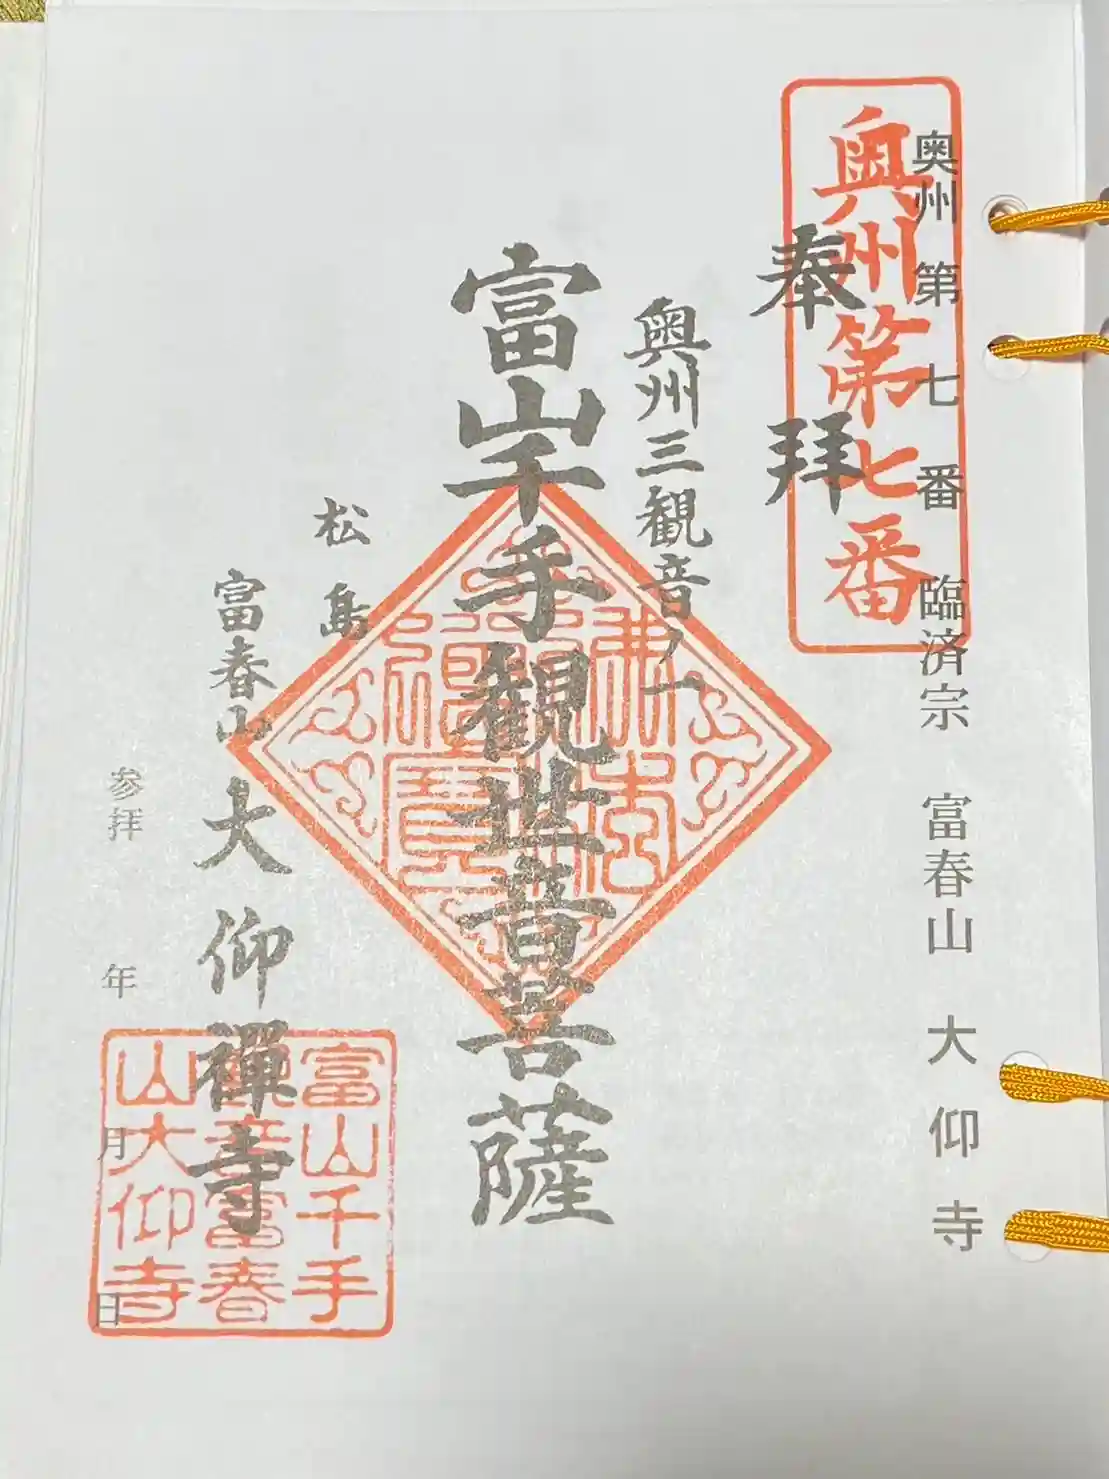 奥州第七番 臨済宗 富春山 大仰寺
奥州第七番
奉拝
奥州三観音ノ一
富山千手観世音菩薩
松島
富春山 大仰禅寺
参拝 年 月 日
佛法僧寳
富山千手
観音富春
山大仰寺